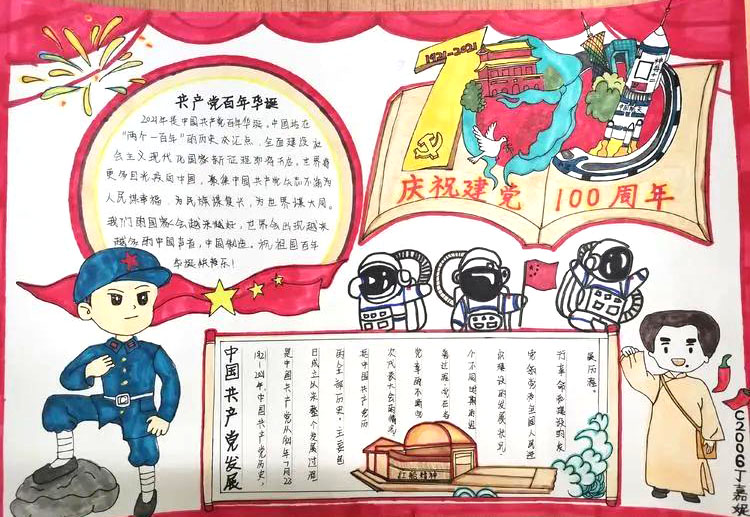 共产党百年华诞
2021年是中国共产党百年华诞。中国站在
"两个一百年"的历史交汇点,全面建设社
会主义现代化国家新征程即将开启。世界将
更多目光投向中国,聚焦中国共产党矢志不渝为
人民谋幸福,为民族谋复兴,为世界谋大同。
我们的国家会越来越好,世界会出现越来
越多的中国声音,中国制造,祝祖国百年
华诞快乐!
1921-2021
100
神舟十二
中国航天
庆祝建党
100周年
中国共产党发展
1921-2021年,中国共产党历史,
是中国共产党从1921年7月23
日成立以来整个发展过程
的全部历史。主要包
括中国共产党历
次代表大会的情况
党章的不断
每过程 党在各
个不同时期 推进
自建设的发展状况
党领导全国人民进
行革命和建设的发
展历程。
红船精神
C2006丁嘉